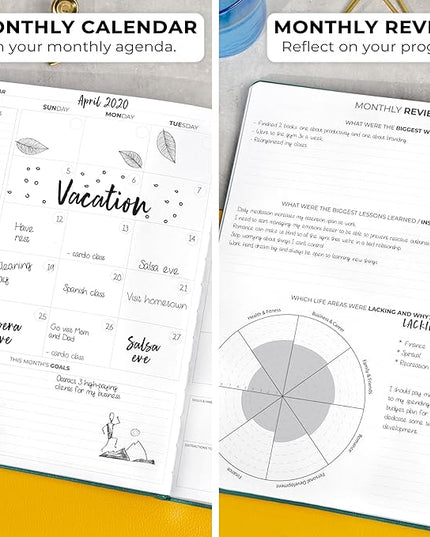 MONTHLY CALENDAR
your monthly agenda.
April 2020
SUNDAY
MONDAY
TUESDAY
5
6
7
Vacation
12
13
14
Have
- cardio class
Salsa eve
20
21
Spanish class
Visit hometown
25
26
27
Go visit Mom
and Dad
- cardio class
Salsa
eve
THIS MONTH'S GOALS
3 high-paying
clients for my business
MONTHLY REVIE
Reflect on your prog
MONTHLY REVIE
WHAT WERE THE BIGGEST W
- Finished 2 books: one about productivity and one about branding.
- Went to the gym 3x a week.
- Reorganized my closet
WHAT WERE THE BIGGEST LESSONS LEARNED / INS
Daily meditation increases my attention span at work.
I need to start managing my emotions better to be able to prevent reactive outbursts
Romance can make us blind to all the signs that we're in a bad relationship.
Stop worrying about things I can't control
Work hard, dream big and always be open to learning new things.
WHICH LIFE AREAS WERE LACKING AND WHY?
LACKIN
* Finance
* Spiritual
* Recreation
Health & Fitness
Business & Career
Family & Friends
Romance
Personal Development
Finance
I should pay mo
to my spending
budget plan for
dedicate some
development.